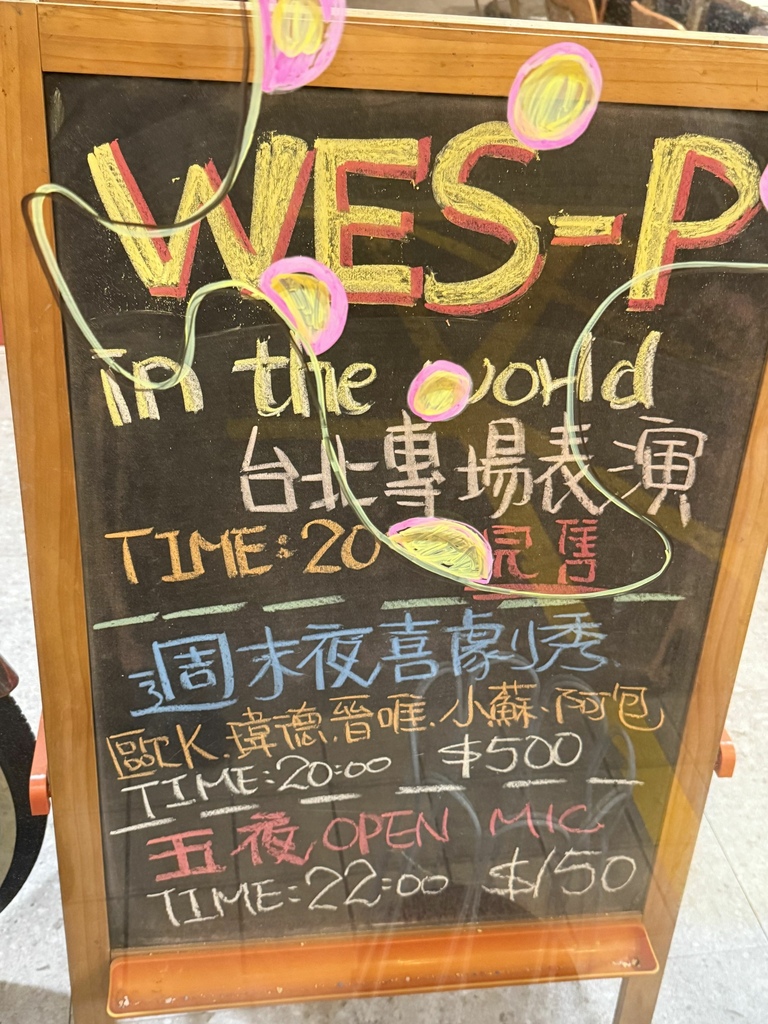 WES-P
in the world
台北專場表演
TIME:20 完售
週末夜喜劇秀
歐K.瑋德.晉唯.小蘇.阿包
TIME:20:00 $500
五夜 OPEN MIC
TIME:22:00 $150